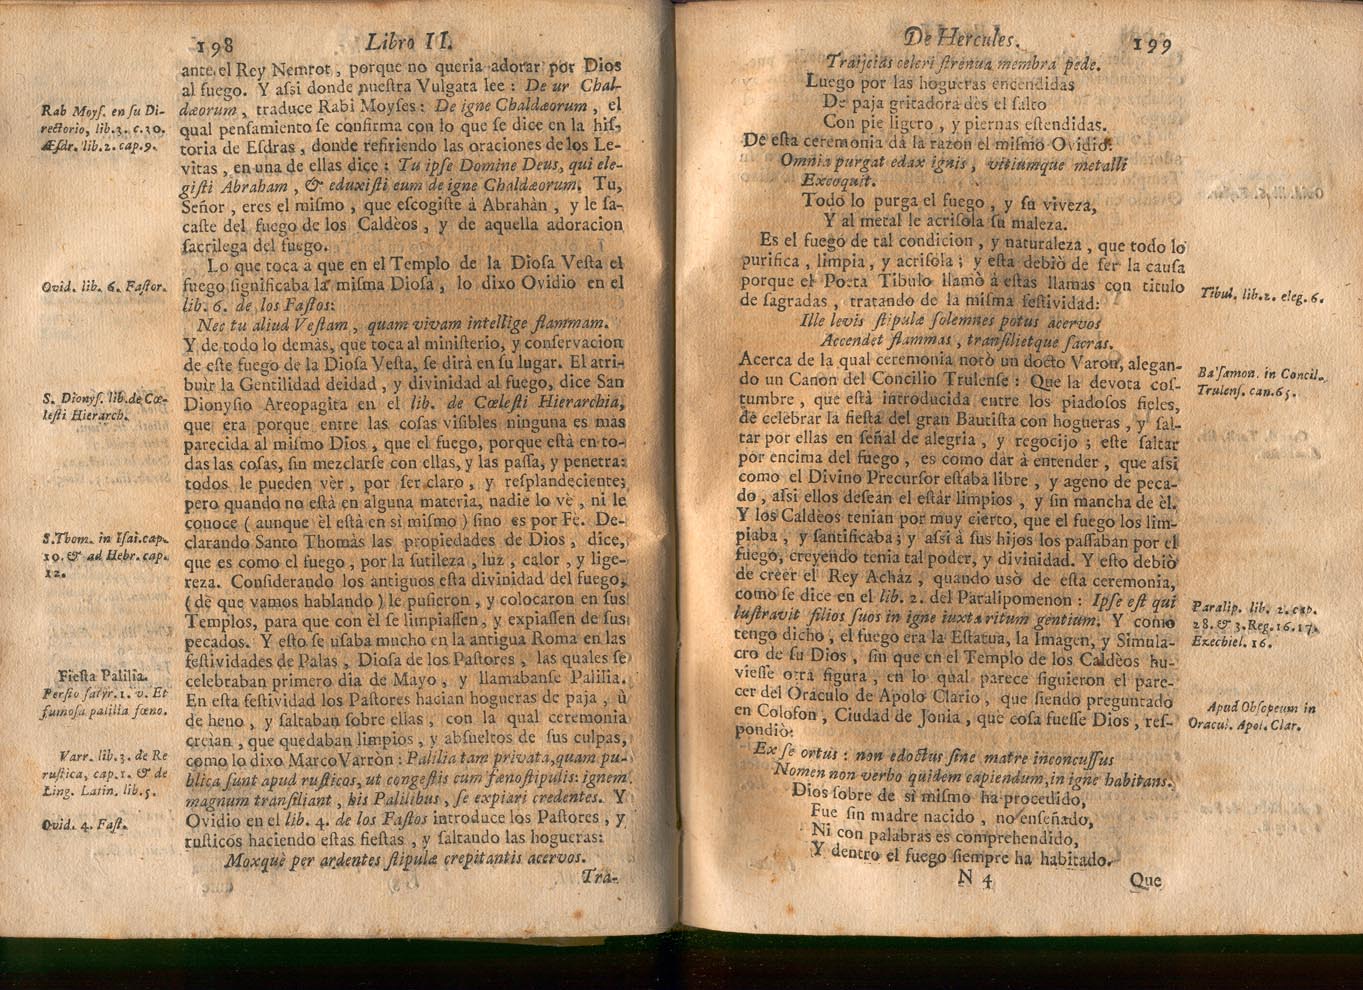 198 Libro II.
ante el Rey Nemrot, porque no queria adorar por Dios
al fuego. Y aſsi donde nueſtra Vulgata lee: De ur Chal-
dæorum, traduce Rabi Moyſes: De igne Chaldæorum, el
qual penſamiento ſe confirma con lo que ſe dice en la hiſ-
toria de Eſdras, donde refiriendo las oraciones de los Le-
vitas, en una de ellas dice: Tu ipſe Domine Deus, qui ele-
giſti Abraham, & eduxiſti eum de igne Chaldæorum. Tu,
Señor, eres el miſmo, que eſcogiſte à Abrahàn, y le ſa-
caſte del fuego de los Caldèos, y de aquella adoracion
ſacrilega del fuego.
Lo que toca a que en el Templo de la Dioſa Veſta el
fuego ſignificaba la miſma Dioſa, lo dixo Ovidio en el
lib. 6. de los Faſtos:
Nec tu aliud Veſtam, quam vivam intellige flammam.
Y de todo lo demàs, que toca al miniſterio, y conſervacion
de eſte fuego de la Dioſa Veſta, ſe dirà en ſu lugar. El atri-
buir la Gentilidad deidad, y divinidad al fuego, dice San
Dionyſio Areopagita en el lib. de Cœleſti Hierarchia,
que era porque entre las coſas viſibles ninguna es mas
parecida al miſmo Dios, que el fuego, porque eſtà en to-
das las coſas, ſin mezclarſe con ellas, y las paſſa, y penetra:
todos le pueden vèr, por ſer claro, y reſplandeciente;
pero quando no eſtà en alguna materia, nadie lo vè, ni le
conoce (aunque èl eſtà en sì miſmo) ſino es por Fè. De-
clarando Santo Thomàs las propiedades de Dios, dice,
que es como el fuego, por la ſutileza, luz, calor, y lige-
reza. Conſiderando los antiguos eſta divinidad del fuego,
(de que vamos hablando) le puſieron, y colocaron en ſus
Templos, para que con èl ſe limpiaſſen, y expiaſſen de ſus
pecados. Y eſto ſe uſaba mucho en la antigua Roma en las
feſtividades de Palas, Dioſa de los Paſtores, las quales ſe
celebraban primero dia de Mayo, y llamabanſe Palilia.
En eſta feſtividad los Paſtores hacian hogueras de paja, ù
de heno, y ſaltaban ſobre ellas, con la qual ceremonia
creìan, que quedaban limpios, y abſueltos de ſus culpas,
como lo dixo Marco Varròn: Palilia tam privata, quam pu-
blica ſunt apud ruſticos, ut congeſtis cum fænoſtipulis: ignem
magnum tranſiliant, his Palilibus, ſe expiari credentes. Y
Ovidio en el lib. 4. de los Faſtos introduce los Paſtores, y
ruſticos haciendo eſtas fieſtas, y ſaltando las hogueras:
Moxquè per ardentes ſtipulæ crepitantis acervos.
Tra-
Rab Moyſ. en ſu Di-
rectorio, lib. 3. c. 30.
Æſdr. lib. 2. cap. 9.
Ovid. lib. 6. Faſtor.
S. Dionyſ. lib. de Cœ-
leſti Hierarch.
S. Thom. in Iſai. cap.
10. & ad Hebr. cap.
12.
Fieſta Palilia.
Perſio ſatyr. 1. v. Et
fumoſa palilia fœno.
Varr. lib. 3. de Re
ruſtica, cap. 1. & de
Ling. Latin. lib. 5.
Ovid. 4. Faſt.
De Hercules. 199
Traijcias celeri ſtrenua membra pede.
Luego por las hogueras encendidas
De paja gritadora dès el ſalto
Con pie ligero, y piernas eſtendidas.
De eſta ceremonia dà la razon el miſmo Ovidio:
Omnia purgat edax ignis, vitiumque metalli
Excoquit.
Todo lo purga el fuego, y ſu viveza,
Y al metal le acriſola ſu maleza.
Es el fuego de tal condicion, y naturaleza, que todo lo
purifica, limpia, y acriſola; y eſta debiò de ſer la cauſa
porque el Poeta Tibulo llamò à eſtas llamas con titulo
de ſagradas, tratando de la miſma feſtividad:
Ille levis ſtipulæ ſolemnes potus acervos
Accendet flammas, tranſilietque ſacras.
Acerca de la qual ceremonia notò un docto Varon, alegan-
do un Canon del Concilio Trulenſe: Que la devota coſ-
tumbre, que eſtà introducida entre los piadoſos fieles,
de celebrar la fieſta del gran Bautiſta con hogueras, y ſal-
tar por ellas en ſeñal de alegria, y regocijo; eſte ſaltar
por encima del fuego, es como dàr à entender, que aſsi
como el Divino Precurſor eſtaba libre, y ageno de peca-
do, aſsi ellos deſean el eſtàr limpios, y ſin mancha de èl.
Y los Caldèos tenian por muy cierto, que el fuego los lim-
piaba, y ſantificaba; y aſsi à ſus hijos los paſſaban por el
fuego, creyendo tenia tal poder, y divinidad. Y eſto debiò
de creer el Rey Achàz, quando usò de eſta ceremonia,
como ſe dice en el lib. 2. del Paralipomenon: Ipſe eſt qui
luſtravit filios ſuos in igne iuxta ritum gentium. Y como
tengo dicho, el fuego era la Eſtatua, la Imagen, y Simula-
cro de ſu Dios, ſin que en el Templo de los Caldèos hu-
vieſſe otra figura, en lo qual parece ſiguieron el pare-
cer del Oràculo de Apolo Clario, que ſiendo preguntado
en Colofon, Ciudad de Jonia, que coſa fueſſe Dios, reſ-
pondiò:
Ex ſe ortus: non edoctus ſine matre inconcuſſus
Nomen non verbo quidem capiendum, in igne habitans.
Dios ſobre de sì miſmo ha procedido,
Fue ſin madre nacido, no enſeñado,
Ni con palabras es comprehendido,
Y dentro el fuego ſiempre ha habitado.
N 4 Que
Tibul. lib. 2. eleg. 6.
Balſamon. in Concil.
Trulenſ. can. 65.
Paralip. lib. 2. cap.
28. & 3. Reg. 16. 17.
Ezechiel. 16.
Apud Obſopeum in
Oracul. Apol. Clar.